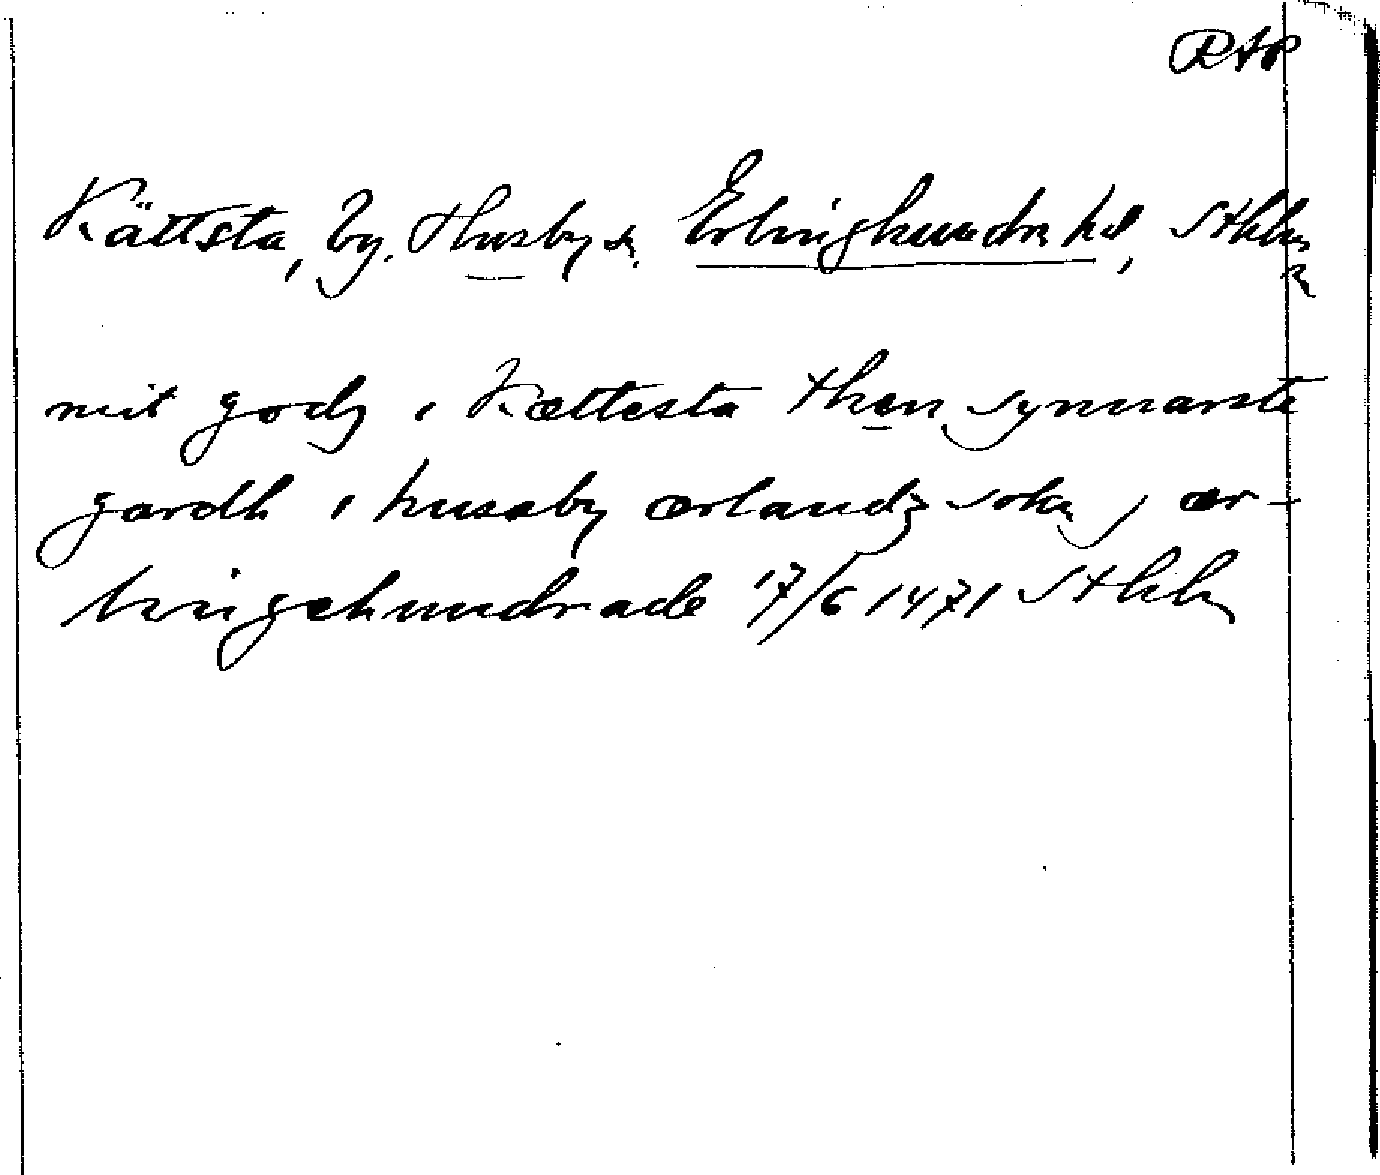 RAP
Kättsta, by. Husby s. Erlinghundra hd, Sthlms
mit godz i Kættesta then synnarste
gardh i husaby ærlandz sokn, ær-
lingehundrade 17/6 1471 Sthlm